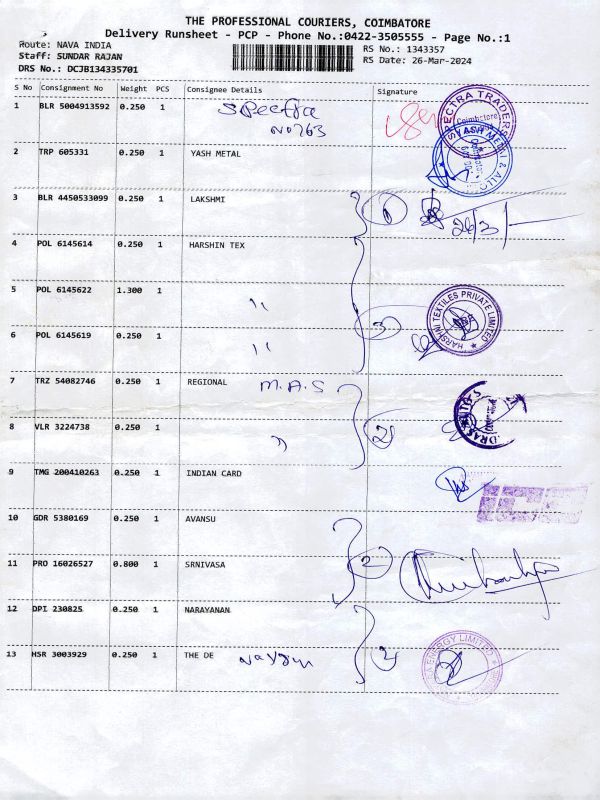 THE PROFESSIONAL COURIERS, COIMBATORE
Delivery Runsheet - PCP - Phone No.:0422-3505555 - Page No.:1
Route: NAVA INDIA RS No.: 1343357
Staff: SUNDAR RAJAN RS Date: 26-Mar-2024
DRS No.: DCJB134335701
S No Consignment No Weight PCS Consignee Details Signature
1 BLR 5004913592 0.250 1 Spectra
No 763
SPECTRA TRADERS
Coimbatore
2 TRP 605331 0.250 1 YASH METAL
YASH METAL & ALLOYS
3 BLR 4450533099 0.250 1 LAKSHMI 1
26/3/
4 POL 6145614 0.250 1 HARSHIN TEX
5 POL 6145622 1.300 1 "
HARSHNI TEXTILES PRIVATE LIMITED
3
6 POL 6145619 0.250 1 "
7 TRZ 54082746 0.250 1 REGIONAL M.A.S
8 VLR 3224738 0.250 1 " 2
9 TMG 200410263 0.250 1 INDIAN CARD
10 GDR 5380169 0.250 1 AVANSU
11 PRO 16026527 0.800 1 SRNIVASA 2
12 DPI 230825 0.250 1 NARAYANAN
13 HSR 3003929 0.250 1 THE DE 2
ENERGY LIMITED